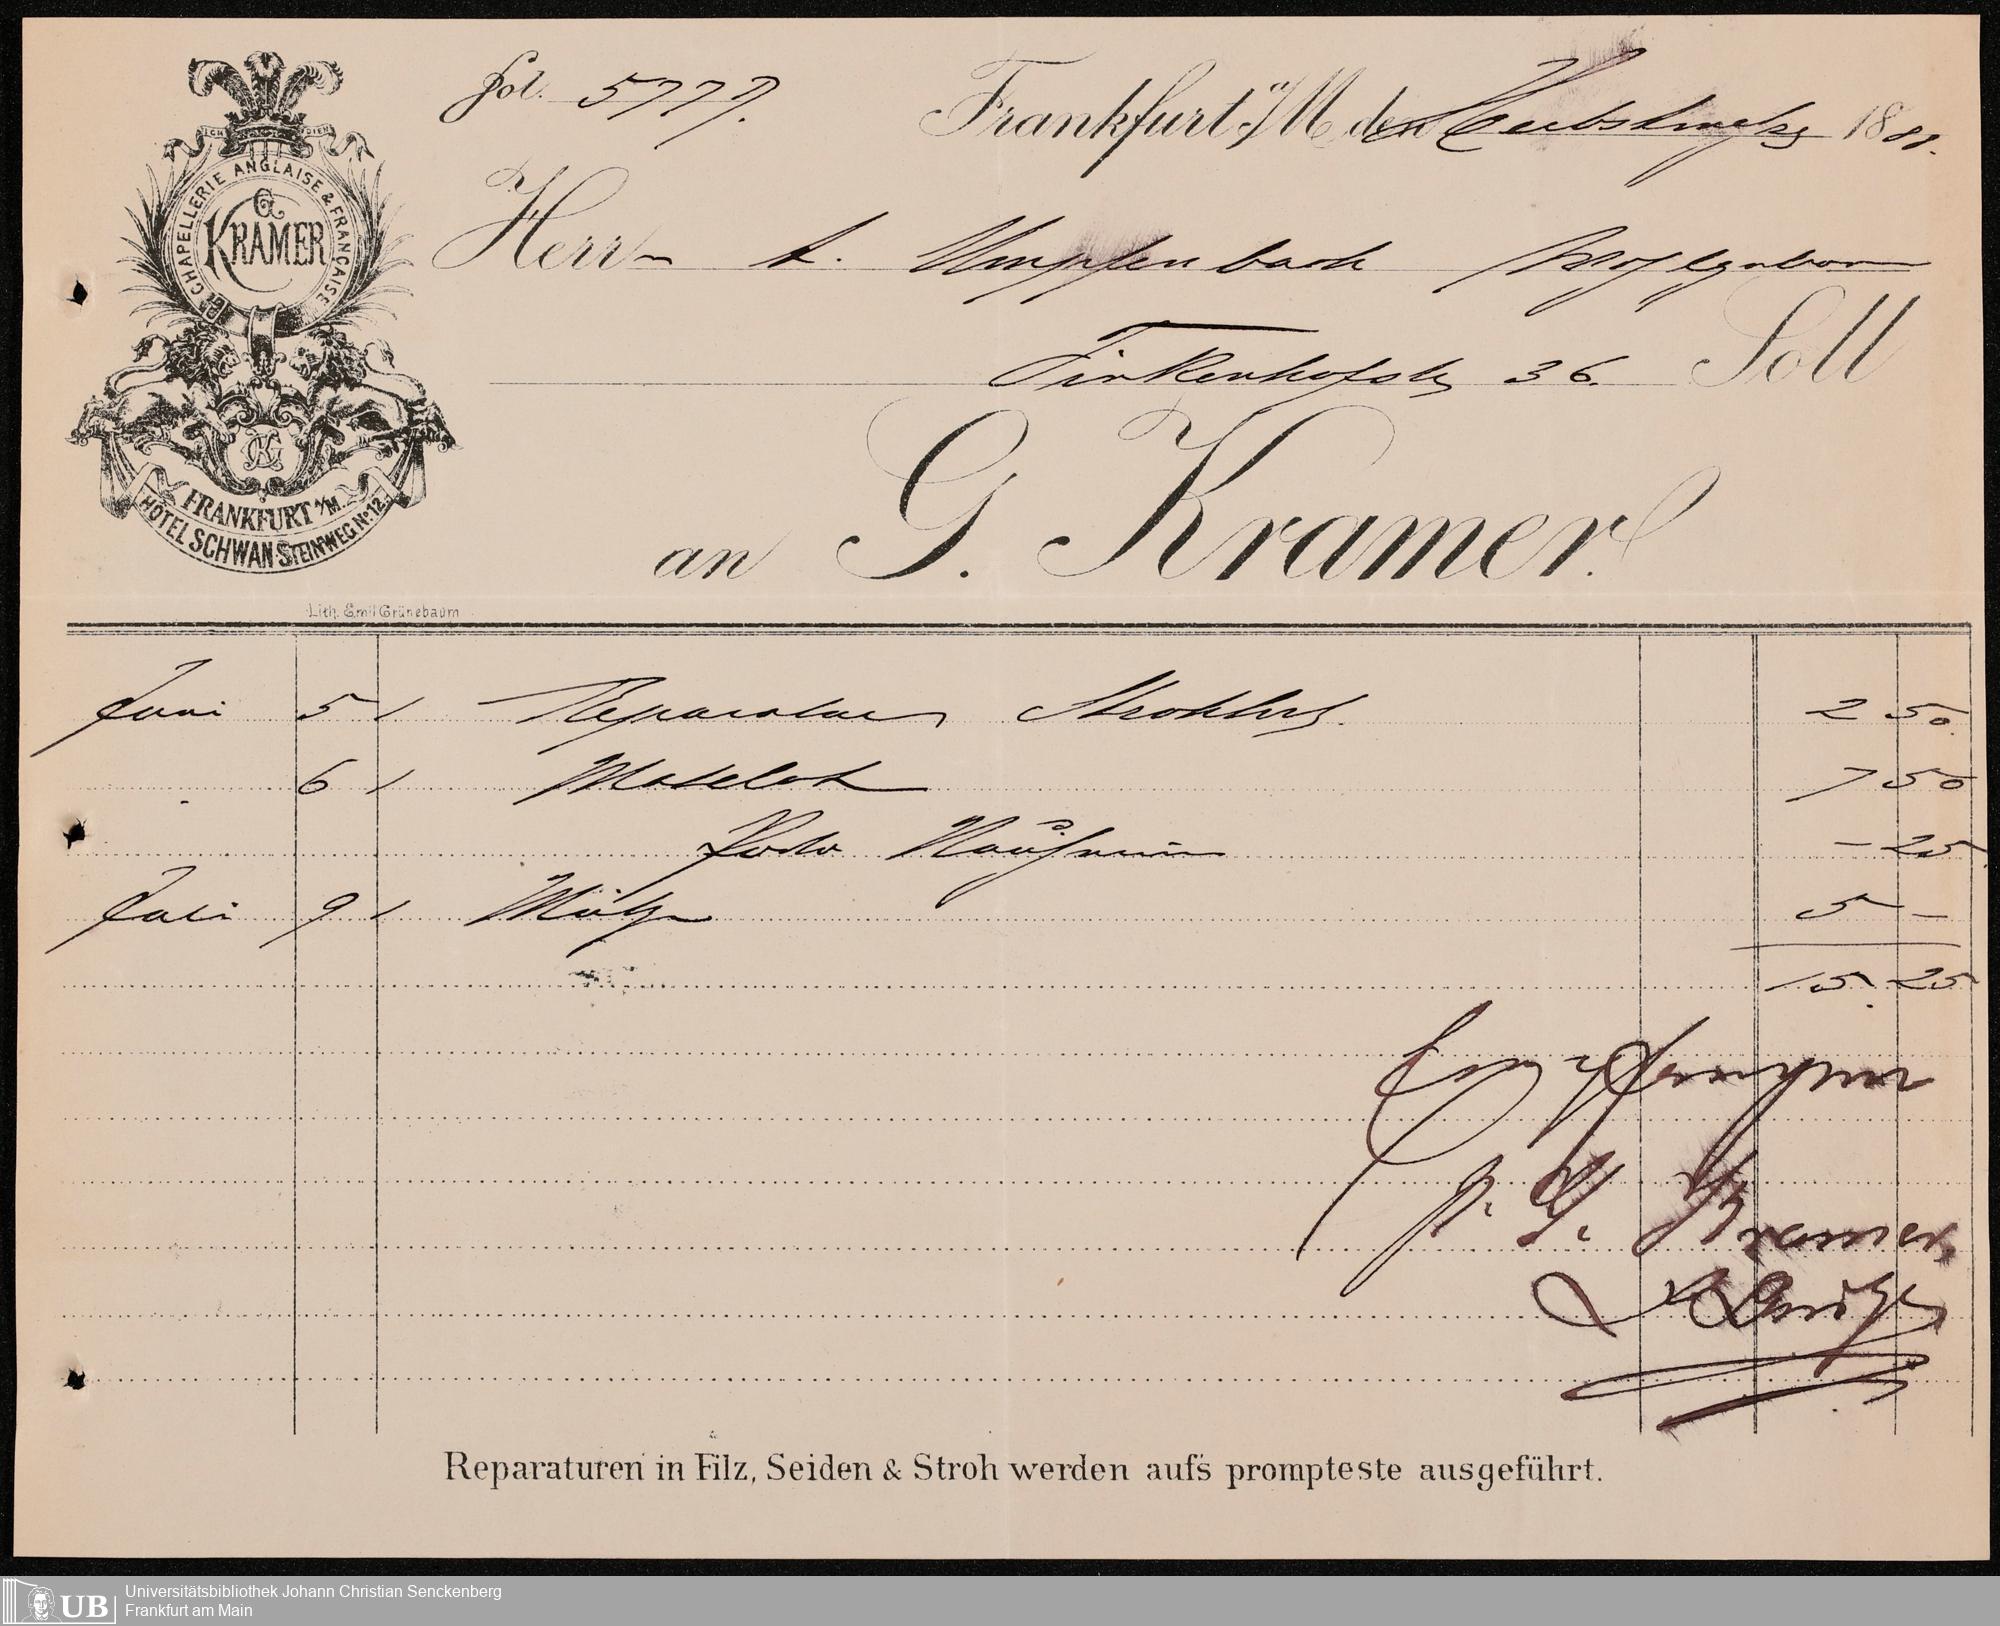 ICH DIEN
CHAPELLERIE ANGLAISE & FRANÇAISE
G KRAMER
GK
FRANKFURT A/M.
HÔTEL SCHWAN-STEINWEG No 12.
fol. 5777.
Frankfurt a/M den Herbstmesse 1881.
Herrn A. Umpfenbach Wohlgeboren
Finkenhofstr 36. Soll
an G. Kramer.
Lith. Emil Grünebaum
Juni 5 1 Reparatur Strohhut. 2 50.
6 1 Matelot 7 50
Porto Nauheim - 25.
Juli 9 1 Mütze 5 -
15. 25
Empfangen
p. G. Kramer
Reparaturen in Filz, Seiden & Stroh werden aufs prompteste ausgeführt.
UB
Universitätsbibliothek Johann Christian Senckenberg
Frankfurt am Main